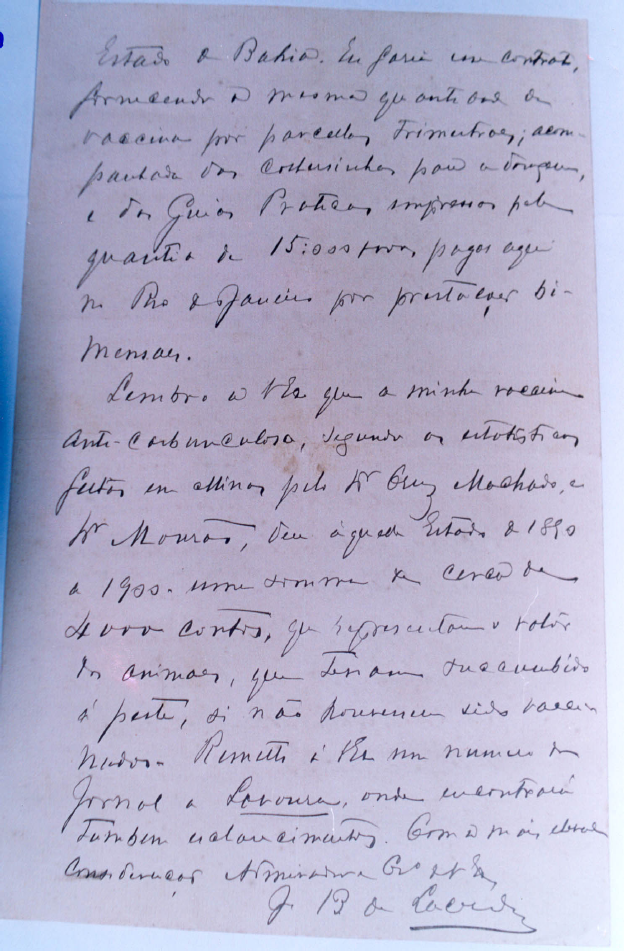 Estado da Bahia. Eu faria um contrato,
fornecendo a mesma quantidade de
vaccina por parcellas trimestraes; acom-
panhada das para a dosagem,
e dos Guias Praticos impressos pela
quantia de 15:000 pagos aqui
no Rio de Janeiro por prestações bi-
mensaes.
Lembro a VExa que a minha vaccina
anti-carbunculosa, segundo as estatisticas
feitas em Minas pelo Dr Cruz Machado, e
Dr Mourão, deu áquelle Estado de 1890
a 1900. uma somma de cerca de
4000 contos, que representam o valôr
dos animaes, que teriam succumbido
á peste, si não houvessem sido vacci-
nados. Remetti á VExa um numero do
Jornal a Lavoura, onde encontrará
tambem esclarecimentos. Com a mais elevada
consideração Admirador e Cro de VExa
J B de Lacerda